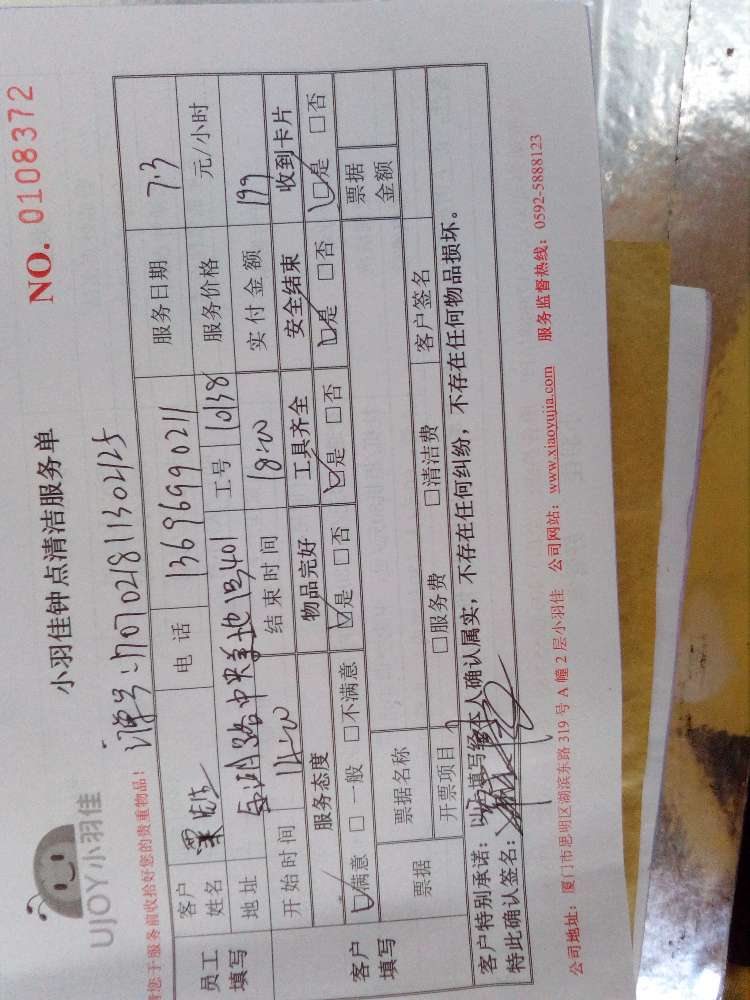 UJOY小羽佳
小羽佳钟点清洁服务单
NO. 0108372
请您于服务前收拾好您的贵重物品！
170702181130425
员工填写
客户姓名 电话 13696990211 服务日期 7.3
地址 中央美地 401 工号 10138 服务价格 元/小时
开始时间 14:00 结束时间 18:00 实付金额 199
客户填写
服务态度 物品完好 工具齐全 安全结束 收到卡片
☑满意 □一般 □不满意 ☑是 □否 ☑是 □否 ☑是 □否 ☑是 □否
票据 票据名称 票据金额
开票项目 □服务费 □清洁费 客户签名
客户特别承诺：以上填写经本人确认属实，不存在任何纠纷，不存在任何物品损坏。
特此确认签名：
公司地址：厦门市思明区湖滨东路 319 号 A 幢 2 层小羽佳 公司网站：www.xiaoyujia.com 服务监督热线：0592-5888123